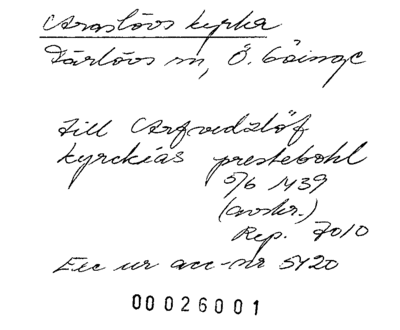 Araslövs kyrka
Färlövs sn, Ö. Göinge
till Arfvedzlöf
kyrckias prestebohl
5/6 1439
(avskr.)
Rep. 7010
Exc ur acc-nr 5420
00026001